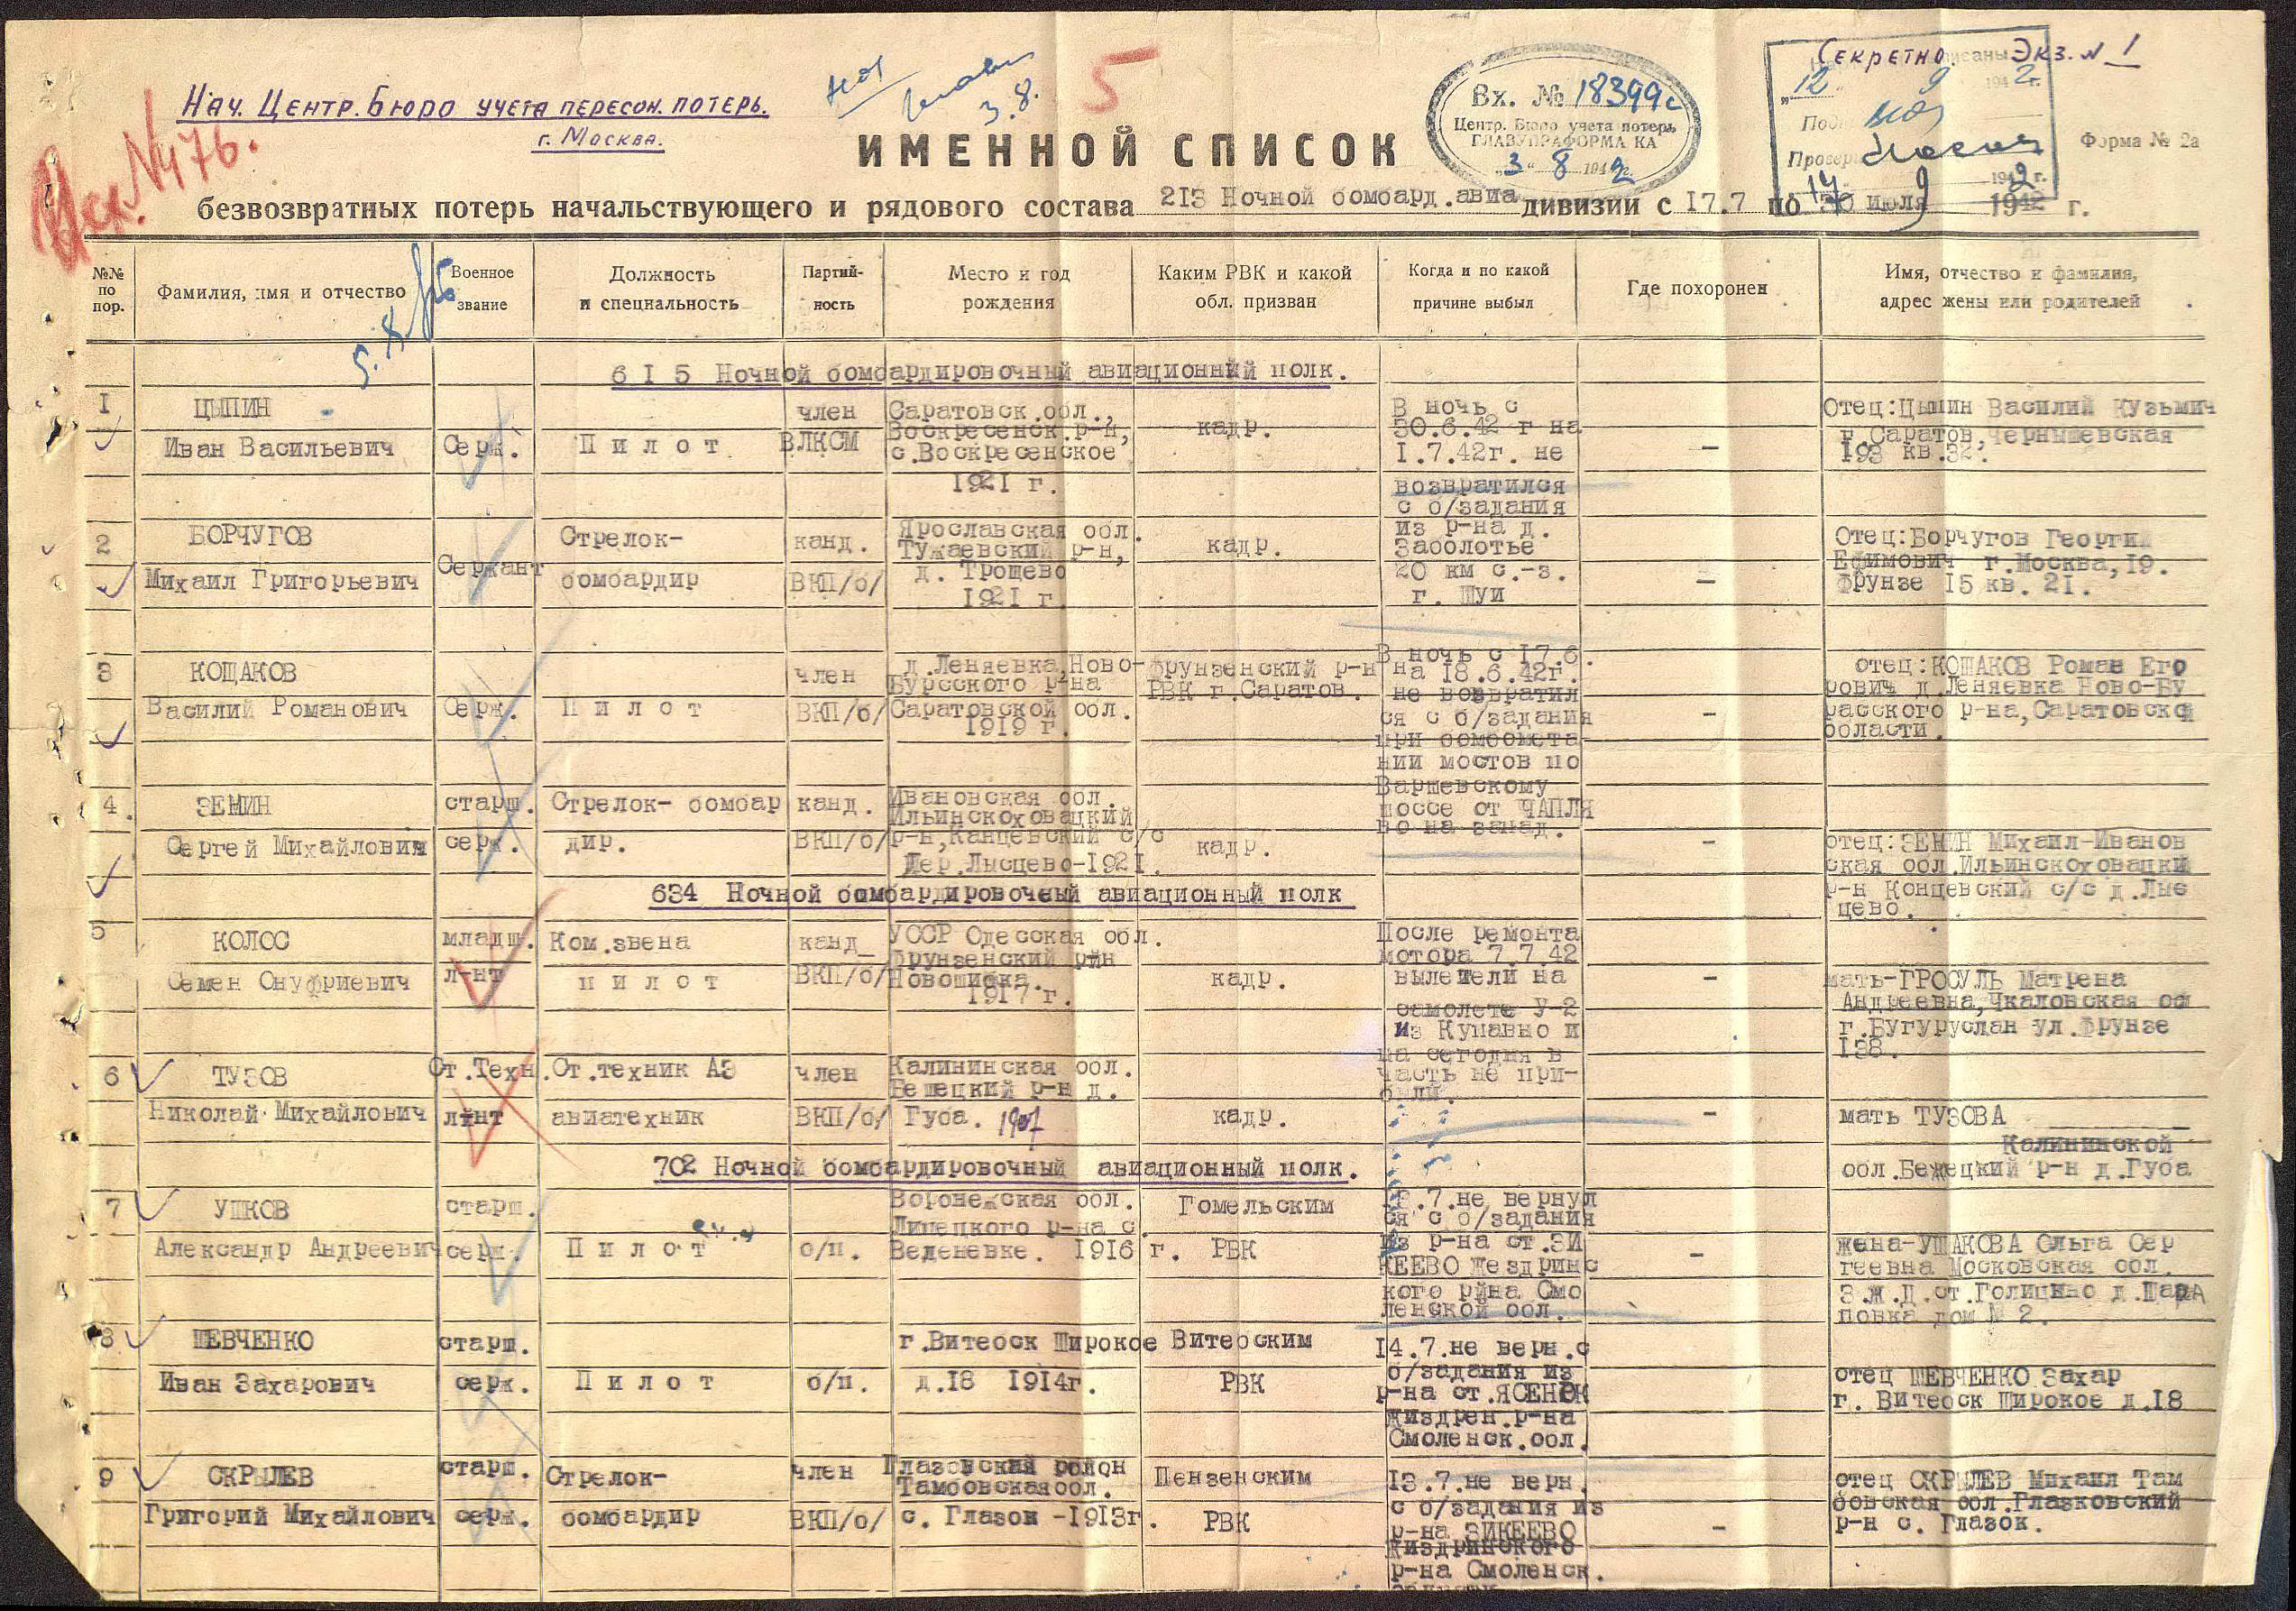 Секретно. Экз. № 1
Нач. Центр. Бюро учета персон. потерь.
г. Москва.
Исх. № 476.
3.8.
5
Вх. № 18399с
Центр. Бюро учета потерь
ГЛАВУПРАФОРМА КА
"3" 8 1942г.
"12" 9 1942г.
1942г.
Форма № 2а
ИМЕННОЙ СПИСОК
безвозвратных потерь начальствующего и рядового состава 213 Ночной бомбард.авиа дивизии с 17.7 по 30 июля 1942 г.
№№ по пор.
Фамилия, имя и отчество
Военное звание
Должность и специальность
Партий-ность
Место и год рождения
Каким РВК и какой обл. призван
Когда и по какой причине выбыл
Где похоронен
Имя, отчество и фамилия, адрес жены или родителей
6 I 5 Ночной бомбардировочный авиационный полк.
I
ЦЫПИН
Иван Васильевич
Серж.
П и л о т
член
ВЛКСМ
Саратовск.обл.,
Воскресенск.р-н,
с.Воскресенское
1921 г.
кадр.
В ночь с
30.6.42 г на
I.7.42г. не
возвратился
с б/задания
из р-на д.
Заболотье
20 км с.-з.
г. Шуи
–
Отец:Цыпин Василий Кузьмич
г.Саратов,Чернышевская
193 кв.32.
2
БОРЧУГОВ
Михаил Григорьевич
Сержант
Стрелок-
бомбардир
канд.
ВКП/б/
Ярославская обл.
Тужаевский р-н,
д. Трощево
1921 г.
кадр.
–
Отец:Борчугов Георгий
Ефимович г.Москва,19.
Фрунзе 15 кв. 21.
3
КОЩАКОВ
Василий Романович
Серж.
П и л о т
член
ВКП/б/
д.Леняевка,Ново-
Бурсского р-на
Саратовской обл.
1919 г.
Фрунзенский р-н
РВК г.Саратов.
В ночь с 17.6.
на 18.6.42г.
не возвратил
ся с б/задания
при бомбомета-
нии мостов по
Варшевскому
шоссе от ЧАПЛЯ
ВО на запад.
–
отец:КОШАКОВ Роман Его
рович д.Леняевка Ново-Бу
расского р-на,Саратовско
области.
4.
ЗЕМИН
Сергей Михайлович
старш.
серж.
Стрелок- бомбар
дир.
канд.
ВКП/б/
Ивановская обл.
Ильинскоховацкий
р-н,Канцевский с/с
Дер.Лысцево-1921.
кадр.
–
отец:ЗЕМИН Михаил-Иванов
ская обл.Ильинскоховацки
р-н Концевский с/с д.Лыс
цево.
634 Ночной бомбардировочный авиационный полк
5
КОЛОС
Семен Онуфриевич
младш.
л-нт
Ком.звена
п и л о т
канд_
ВКП/б/
УССР Одесская обл.
Фрунзенский р-н
Новошибка.
1917 г.
кадр.
После ремонта
мотора 7.7.42
вылетели на
самолете У-2
из Купавно и
на сегодня в
часть не при-
были.
–
мать-ГРОСУЛЬ Матрена
Андреевна,Чкаловская об
г.Бугуруслан ул.Фрунзе
138.
6
ТУЗОВ
Николай Михайлович
Ст.Техн.
л-нт
Ст.техник АЭ
авиатехник
член
ВКП/б/
Калининская обл.
Бешецкий р-н д.
Губа. 1907
кадр.
–
мать ТУЗОВА
Калининской
обл.Бежецкий р-н д.Губа
702 Ночной бомбардировочный авиационный полк.
7
УШКОВ
Александр Андреевич
старш.
серж.
П и л о т
б/п.
Воронежская обл.
Липецкого р-на с.
Веденевке. 1916 г.
Гомельским
РВК
13.7.не вернул
ся с б/задания
из р-на ст.ЗИ
КЕЕВО Жездринс
кого р-на Смо
ленской обл.
–
жена-УШАКОВА Ольга Сер
геевна Московская обл.
З.ж.д.ст.Голицыно д.Шара
повка дом № 2.
8
ШЕВЧЕНКО
Иван Захарович
старш.
серж.
П и л о т
б/п.
г.Витебск Широкое
д.18 1914г.
Витебским
РВК
14.7.не верн.с
б/задания из
р-на ст.ЯСЕНОК
Жиздрен.р-на
Смоленск.обл.
отец ШЕВЧЕНКО Захар
г. Витебск Широкое д.18
9
СКРЫЛЕВ
Григорий Михайлович
старш.
серж.
Стрелок-
бомбардир
член
ВКП/б/
Глазовский район
Тамбовская обл.
с. Глазок -1913г.
Пензенским
РВК
13.7.не верн.
с б/задания из
р-на ЗИКЕЕВО
Жиздринского
р-на Смоленск.
–
отец СКРЫЛЕВ Михаил Там
бовская обл.Глазковский
р-н с. Глазок.